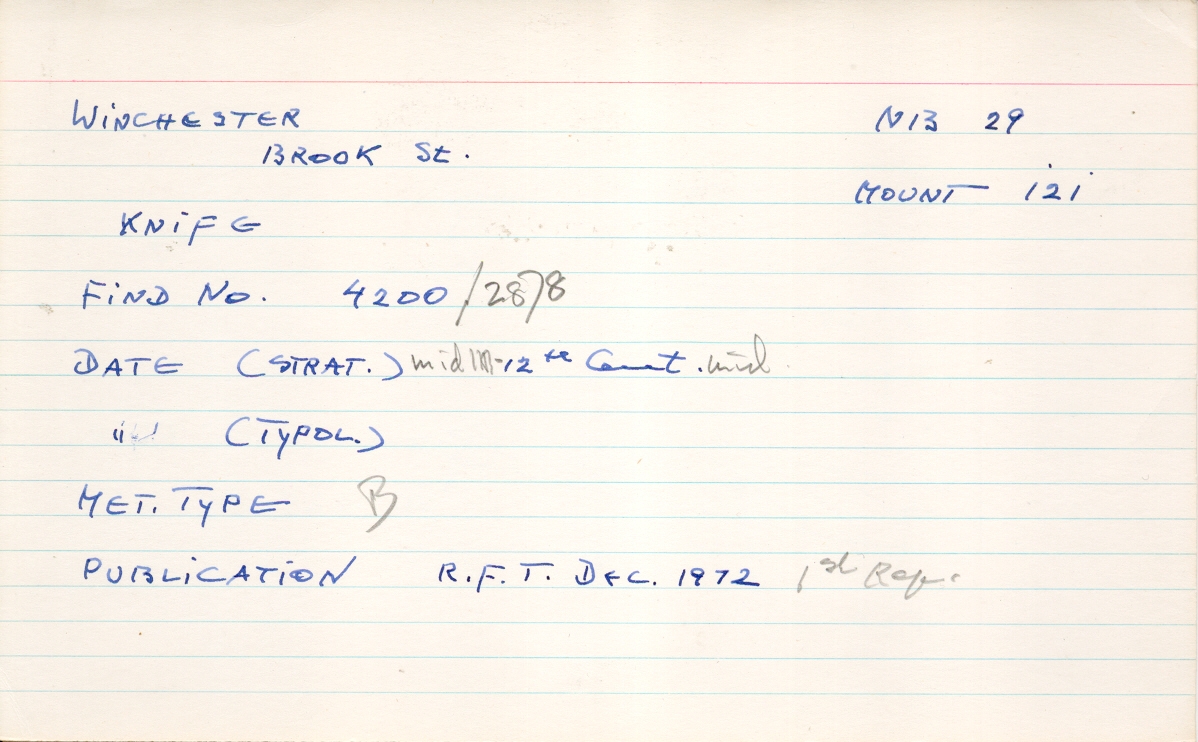 WINCHESTER NB 29
BROOK St.
MOUNT 121
KNIFE
FIND No. 4200/2878
DATE (STRAT.) mid 11-12th Cent. mid
" (TYPOL.)
MET. TYPE B
PUBLICATION R.F.T. DEC. 1972 1st Rep.